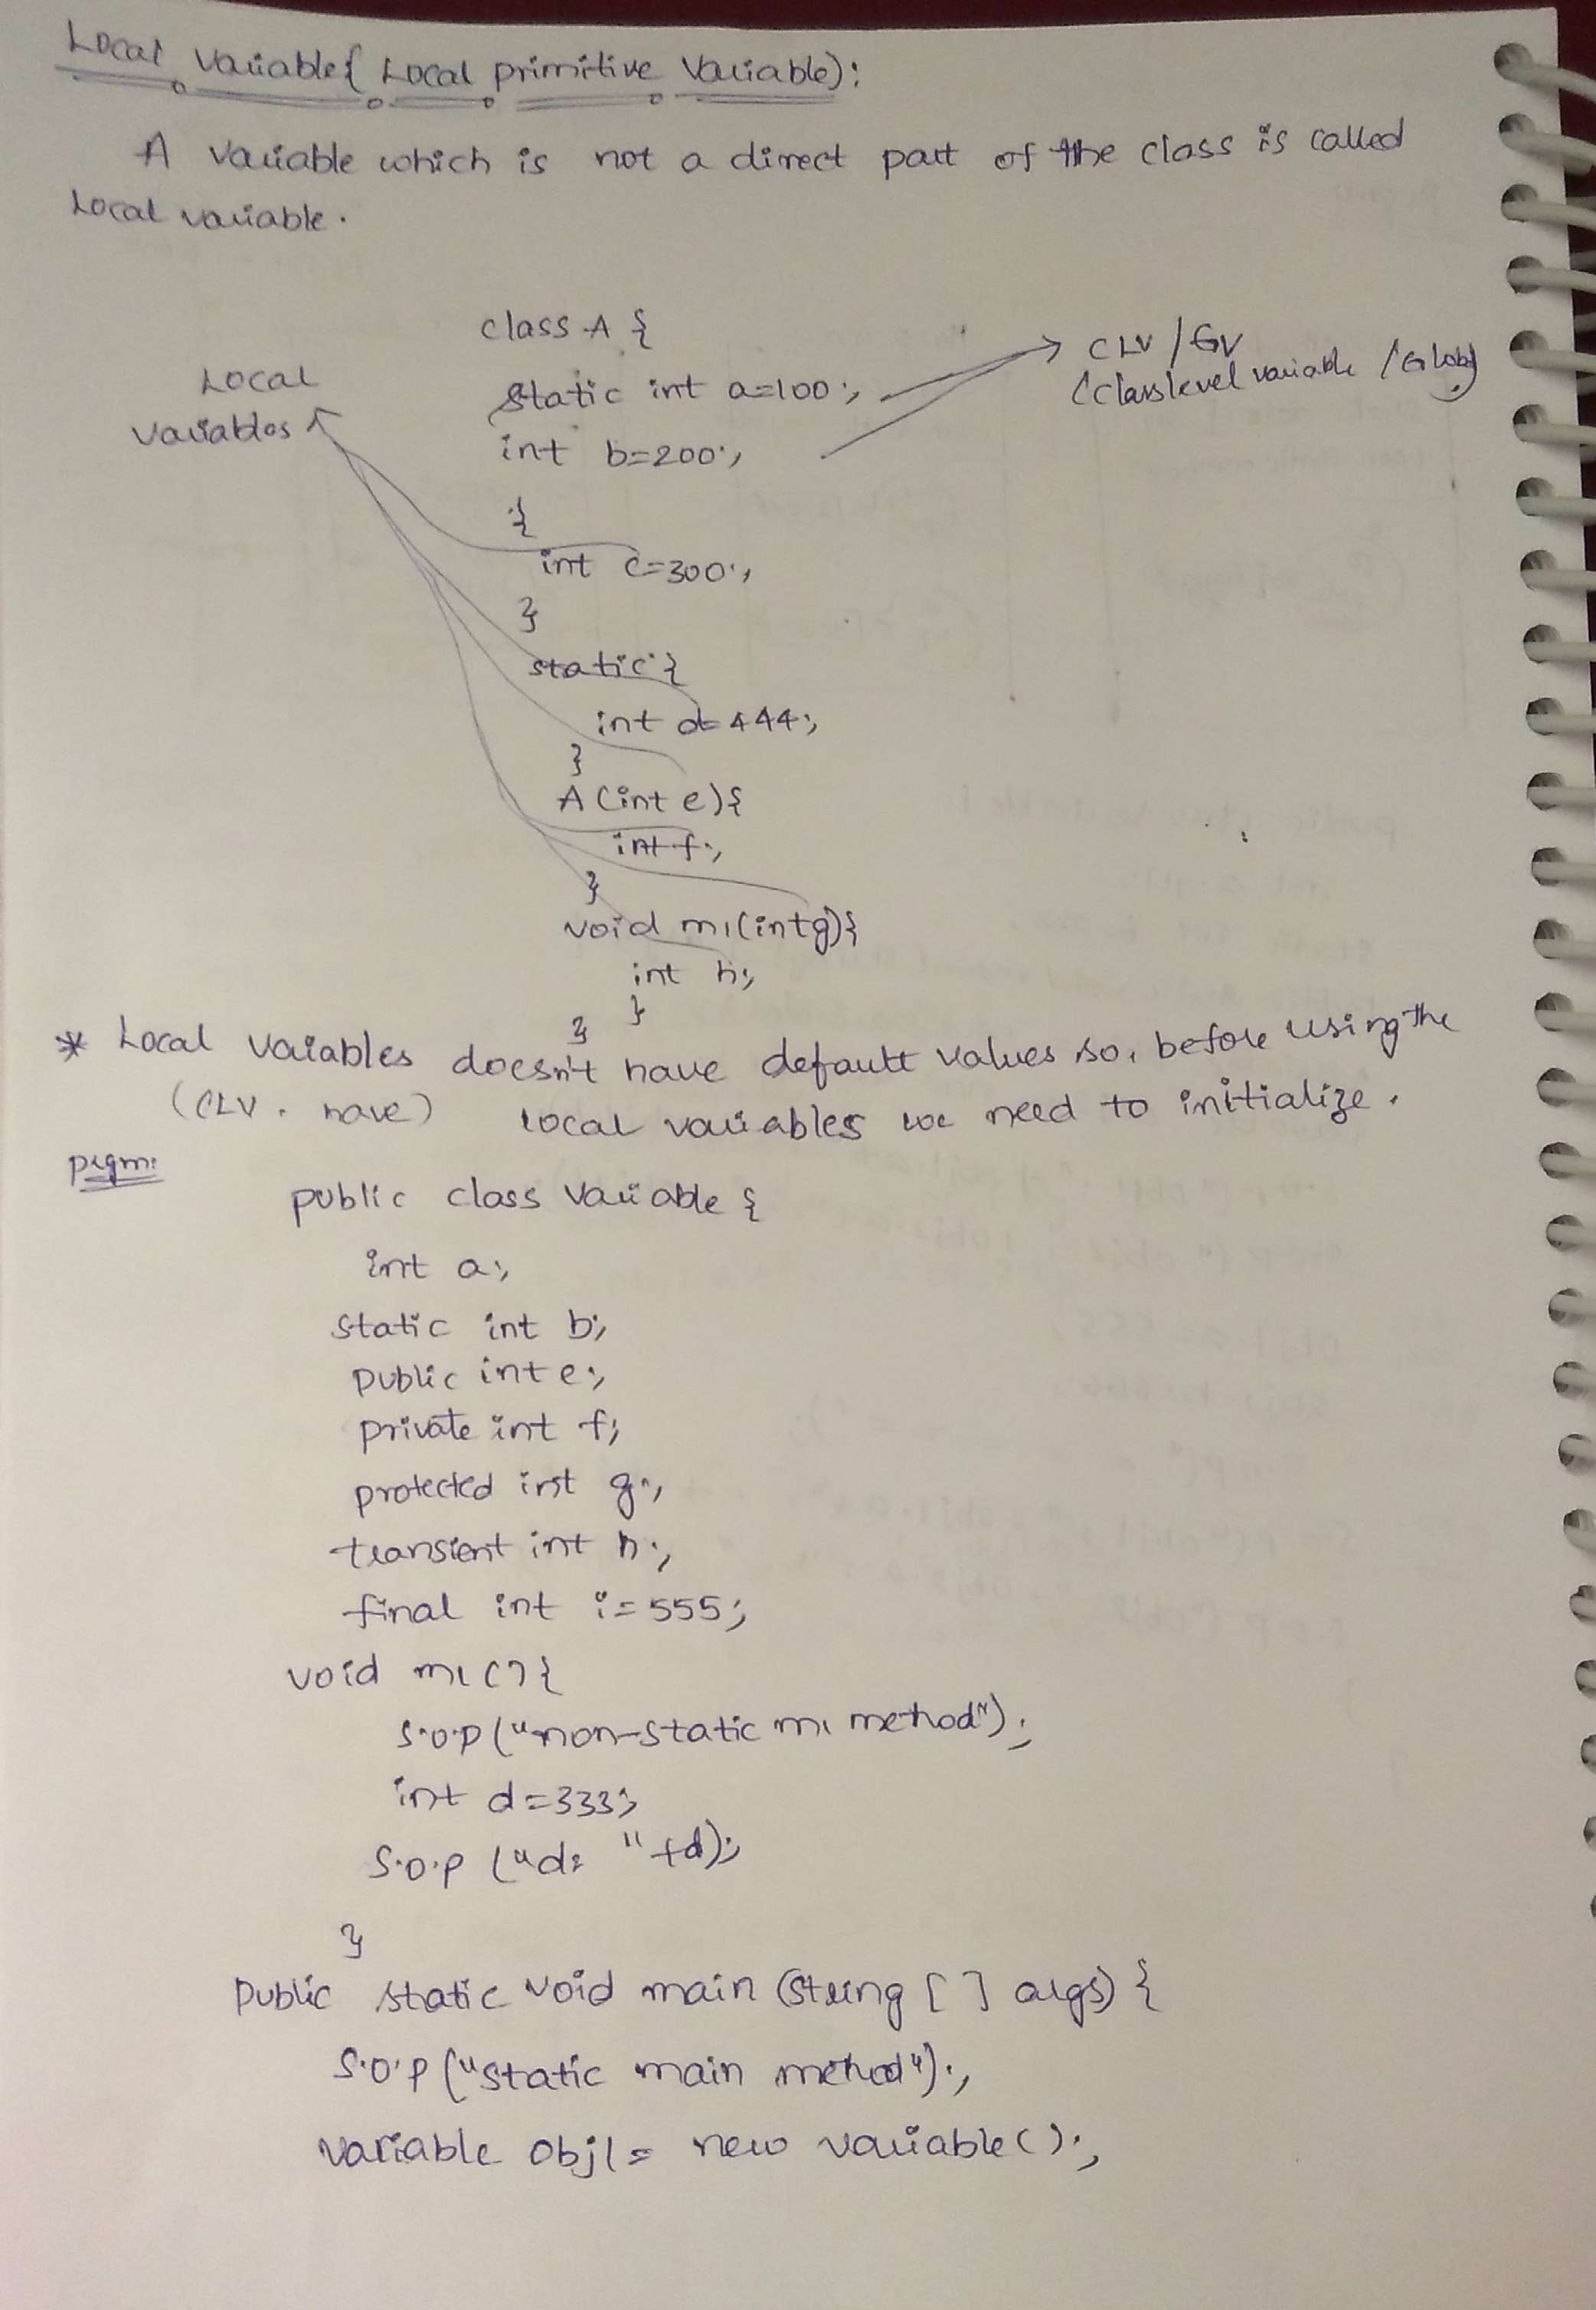 Local Variable( Local primitive Variable):
A variable which is not a direct part of the class is called
Local variable.
class A {
Local
variables
static int a=100;
CLV / GV
(Classlevel variable / Global)
int b=200;
{
int c=300;
}
static {
int d=444;
}
A (int e){
int f;
}
void m1(int g){
int h;
}
}
* Local variables doesn't have default values so, before using the
(CLV. have) local variables we need to initialize.
prgm:
public class Variable {
int a;
static int b;
public int e;
private int f;
protected int g;
transient int h;
final int i=555;
void m1(){
S.O.P("non-static m1 method");
int d=333;
S.O.P ("d: "+d);
}
public static void main (String [ ] args) {
S.O.P ("static main method");
variable obj1= new variable();